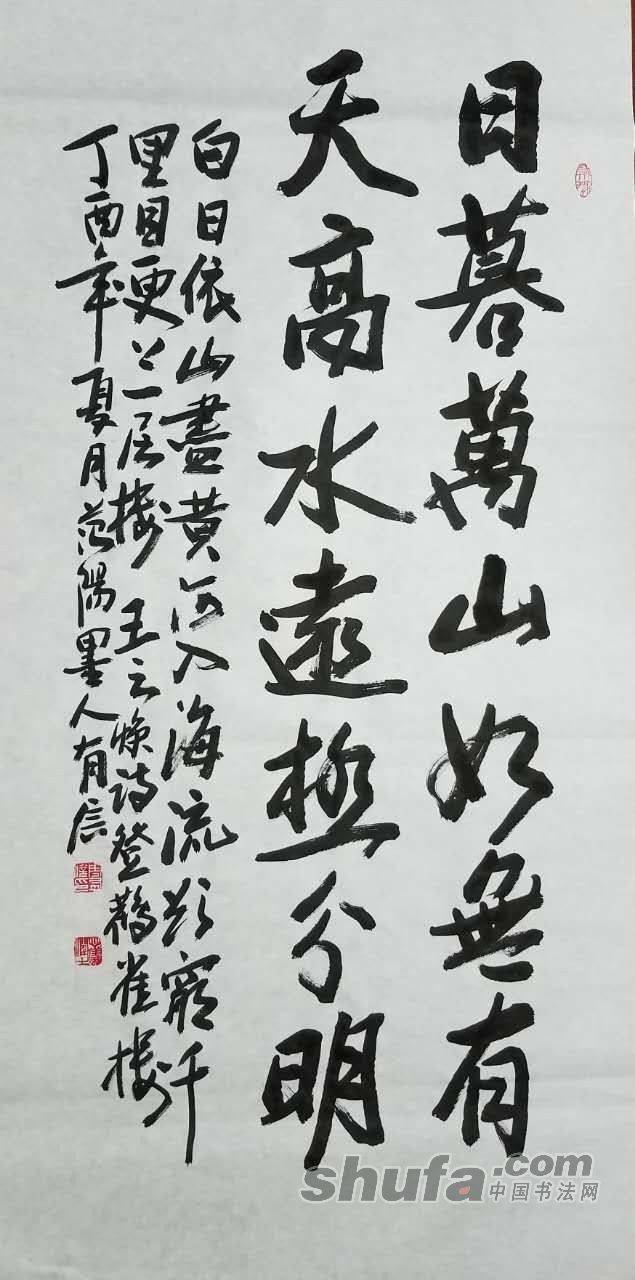 日暮萬山如無有
天高水遠極分明
白日依山盡黄河入海流欲窮千
里目更上一层楼 王之焕诗登鹳雀楼
丁酉年夏月范陽墨人有信
shufa.com
中国书法网